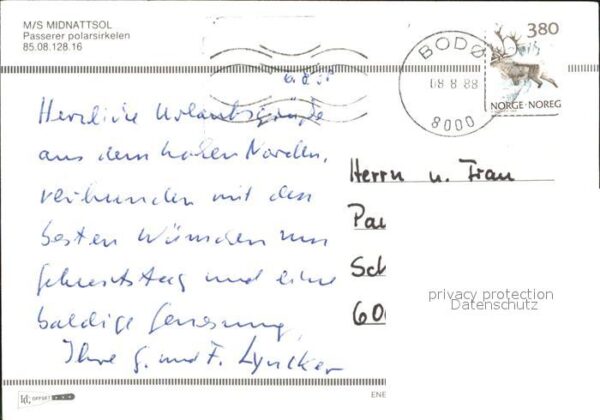 M/S MIDNATTSOL
Passerer polarsirkelen
85.08.128.16
BODØ
08 8 88
8000
3.80
NORGE·NOREG
6.8.88
Herzliche Urlaubsgrüße
aus dem hohen Norden,
verbunden mit den
besten Wünschen zum
Geburtstag und eine
baldige Genesung,
Ihre G. und F. Lyncker
Herrn u. Frau
Pau
Sch
600
privacy protection
Datenschutz
OFFSET
ENE